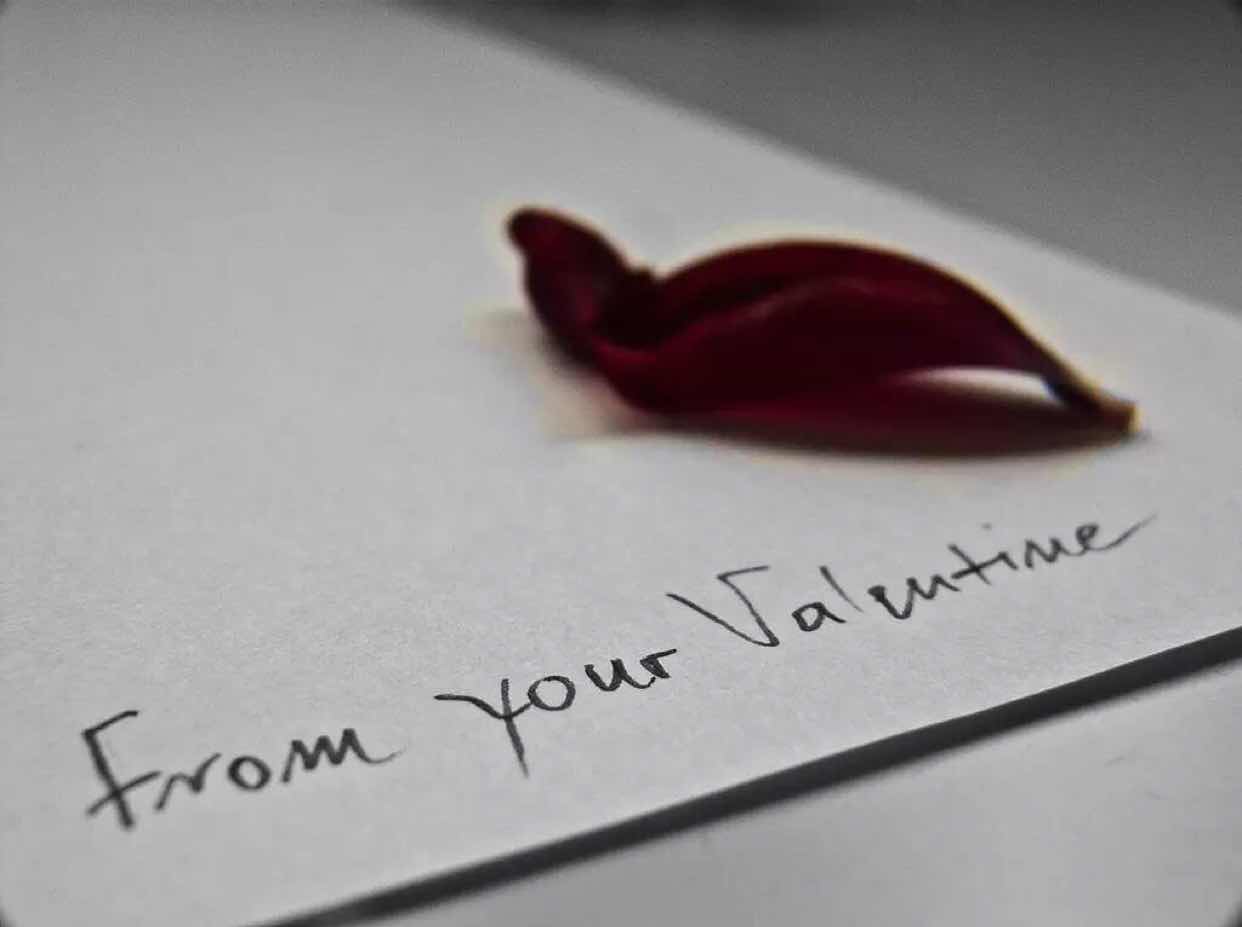 From your Valentine